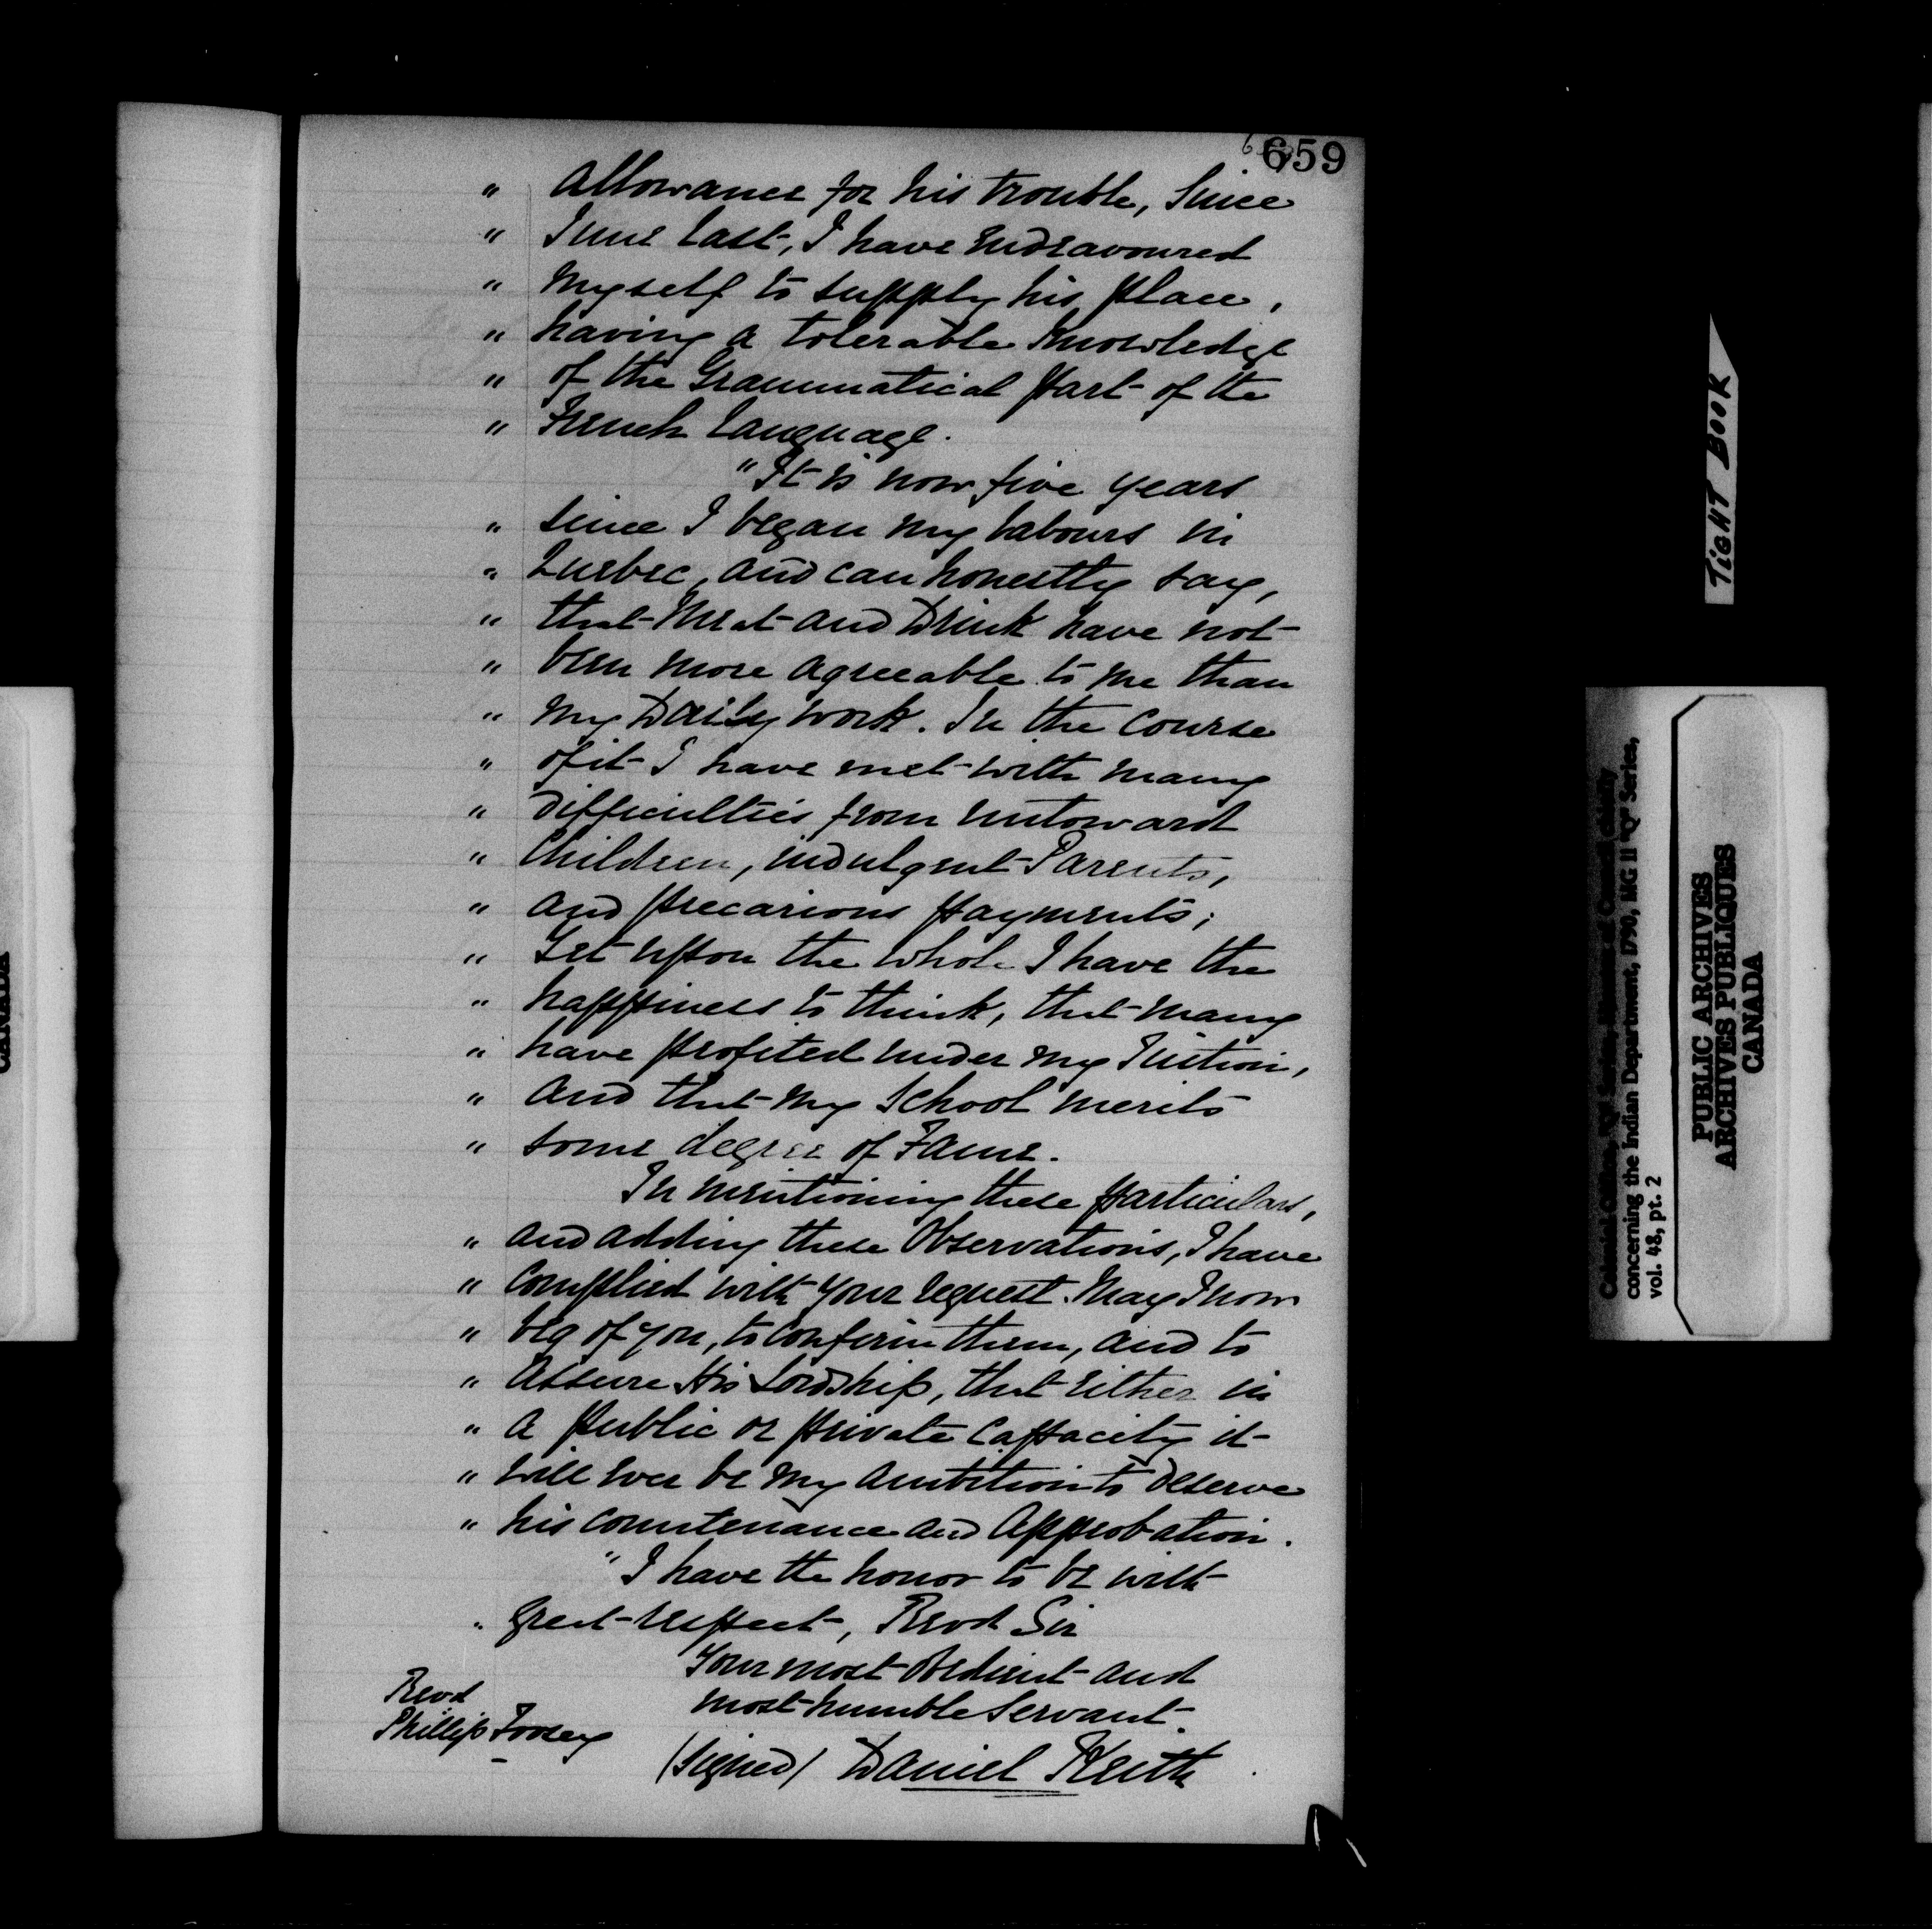 659
" Allowance for his trouble, Since
" June last, I have endeavoured
" myself to supply his place,
" having a tolerable Knowledge
" of the Grammatical part of the
" French Language.
"It is now five years
" since I began my labours in
" Quebec, and can honestly say,
" that Meat and Drink have not
" been more agreeable to me than
" my Daily work. In the course
" of it I have met with many
" difficulties from untoward
" Children, indulgent Parents,
" and precarious payments;
" Yet upon the whole I have the
" happiness to think, that many
" have profited under my Tuition,
" and that my School merits
" some degree of Fame.
In mentioning these particulars,
" and adding these Observations, I have
" complied with your request. May I now
" beg of you, to confirm them, and to
" assure His Lordship, that either in
" a public or private capacity it
" will ever be my ambition to deserve
" his countenance and Approbation.
" I have the honor to be with
" great respect, Revd Sir
Your most obedient and
most humble Servant.
Revd
Phillip Toosey
(signed) Daniel Keith
TIGHT BOOK
concerning the Indian Department, 1790, MG 11 "Q" Series,
vol. 48, pt. 2
PUBLIC ARCHIVES
ARCHIVES PUBLIQUES
CANADA
CANADA